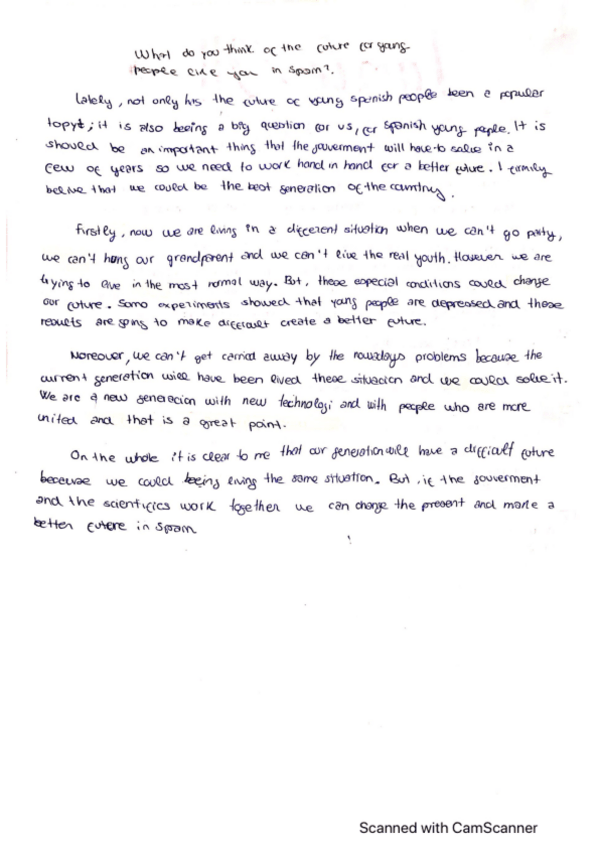 What do you think of the future for young
people like you in Spain?
Lately, not only his the future of young spanish people been a popular
topyt; it is also beeing a big question for us, for spanish young people. It is
should be an important thing that the goverment will have to solve in a
few of years so we need to work hand in hand for a better future. I firmily
belive that we could be the best generation of the country.
Firstly, now we are living in a different situation when we can't go party,
we can't hung our grandparent and we can't live the real youth. However we are
trying to live in the most normal way. But, these especial conditions could change
our future. Some experiments showed that young people are depressed and these
results are going to make difficult create a better future.
Moreover, we can't get carried away by the nowadays problems because the
current generation will have been lived these situacion and we could solve it.
We are a new generacion with new technologi and with people who are more
united and that is a great point.
On the whole it is clear to me that our generation will have a difficult future
because we could being living the same situation. But, if the gouverment
and the scientifics work together we can change the present and make a
better future in Spain
Scanned with CamScanner